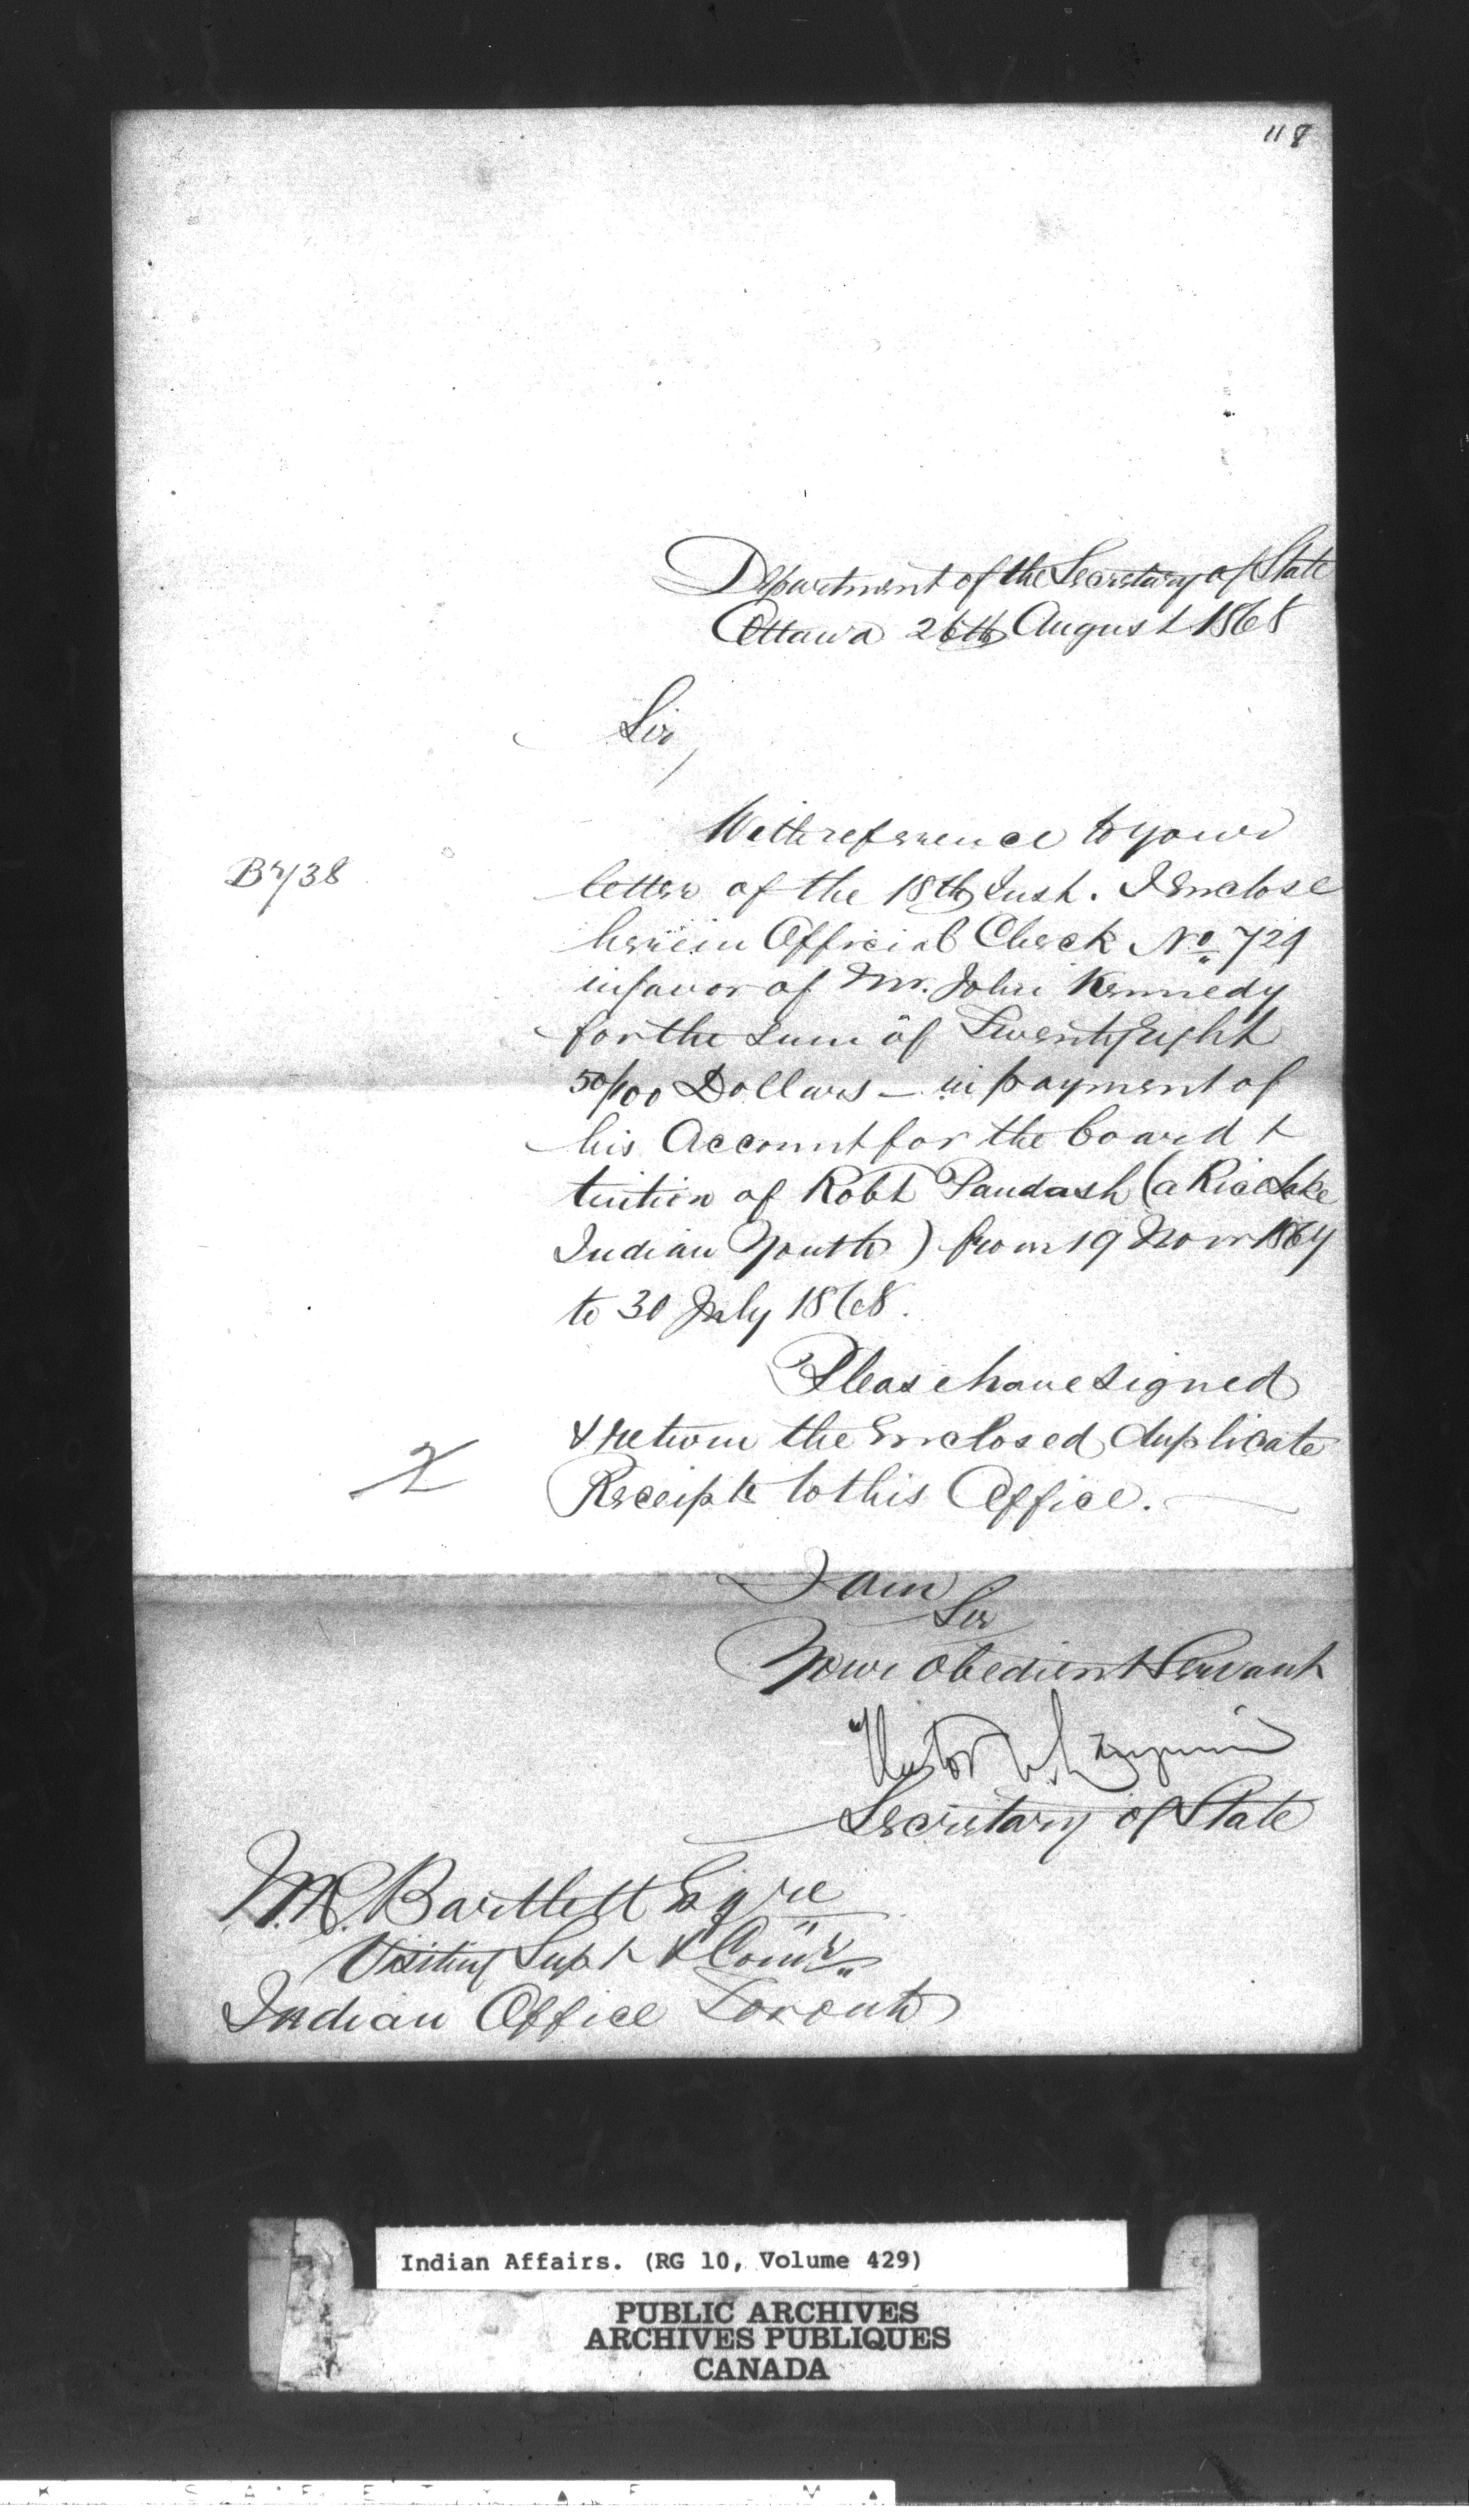 118
Department of the Secretary of State
Ottawa 26th August 1868
Sir,
With reference to your
B738
letter of the 18th Inst. I Enclose
herein Official Check No 729
in favor of Mr. John Kennedy
for the sum of Twenty Eight
50/100 Dollars – in payment of
his Account for the board &
tuition of Robt Paudash (a Rice Lake
Indian Youth) from 19 Novr 1867
to 30 July 1868.
Please have signed
& return the Enclosed duplicate
Receipts to this Office. —
I am
Sir
Your Obedient Servant
Hector L. Langevin
Secretary of State
W.R. Bartlett Esqre
Visiting Supt & Comr
Indian Office Toronto
Indian Affairs. (RG 10, Volume 429)
PUBLIC ARCHIVES
ARCHIVES PUBLIQUES
CANADA